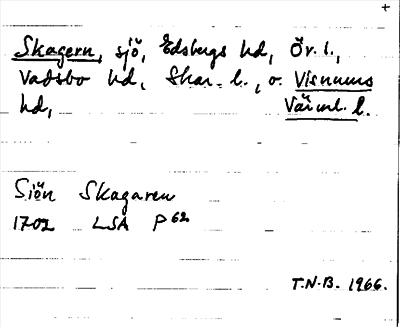 +
Skagern, sjö, Edsbergs hd, Ör. l.,
Vadsbo hd, Skar. l., o. Visnums
hd, Värml. l.
Siön Skagaren
1702 LSA P 62
T.N-B. 1966.